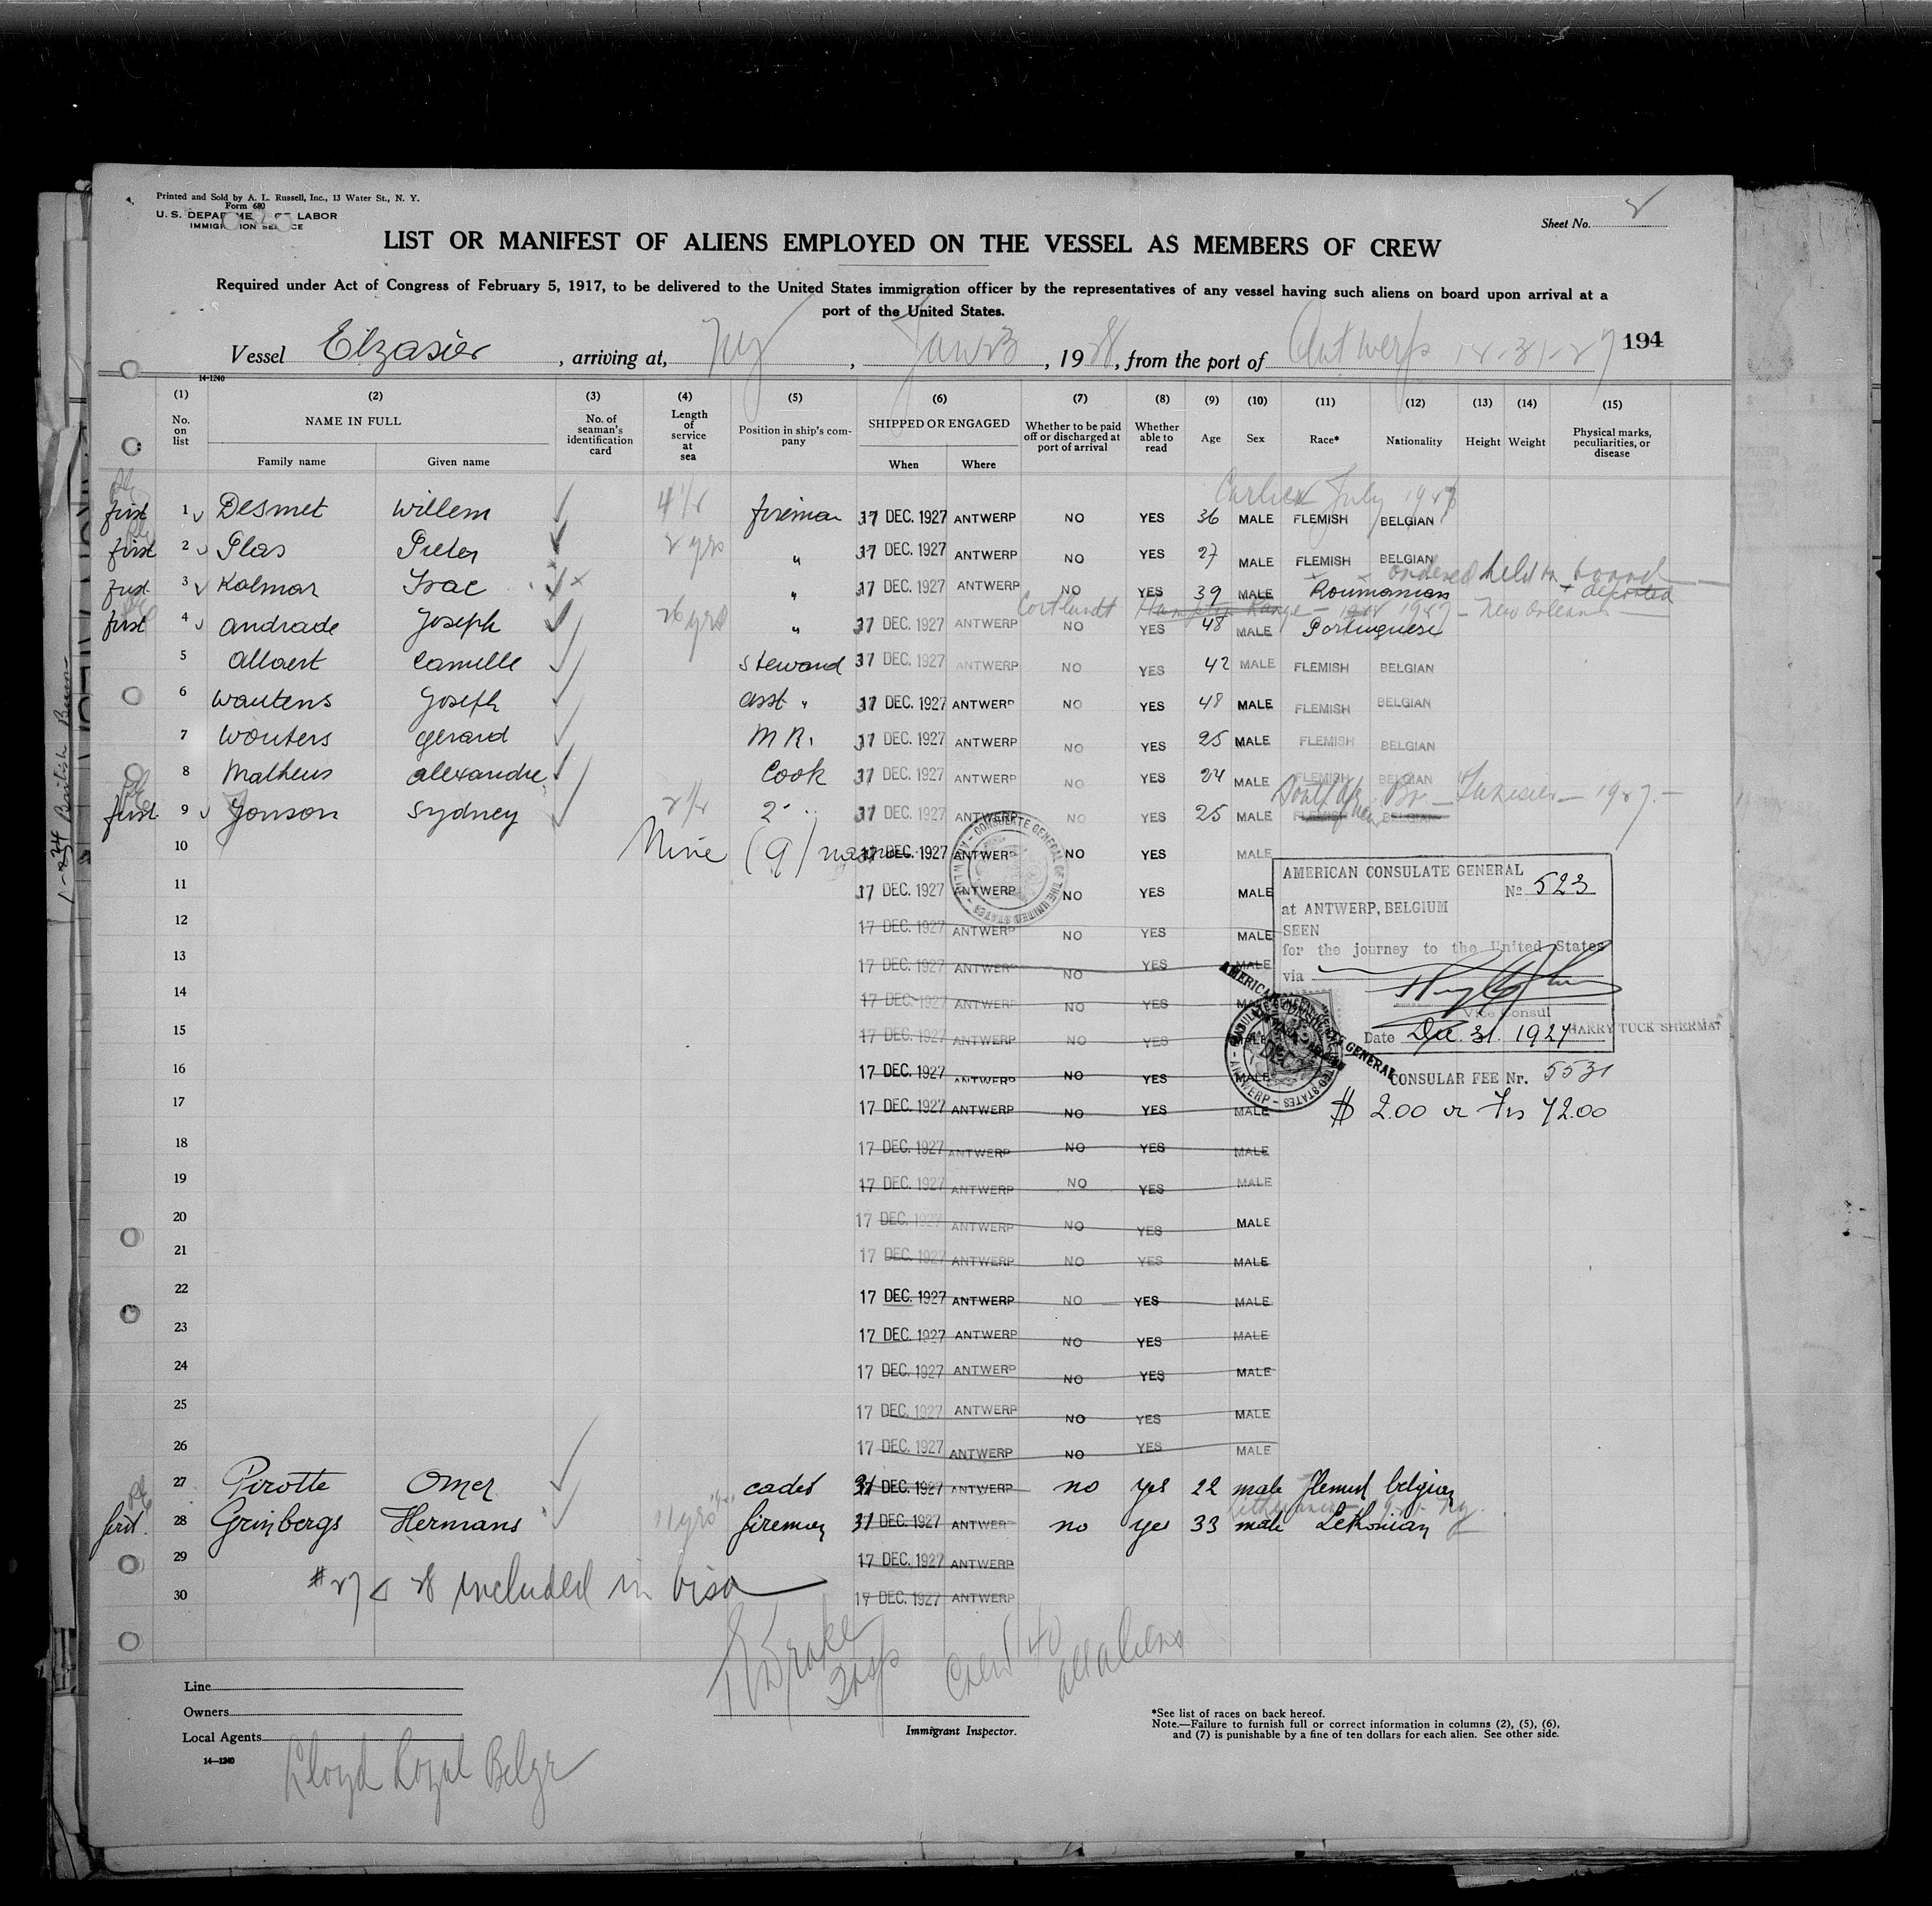 Printed and Sold by A. L. Russell, Inc., 13 Water St., N. Y.
Form 680
U. S. DEPARTMENT OF LABOR
IMMIGRATION SERVICE
Sheet No. 2
LIST OR MANIFEST OF ALIENS EMPLOYED ON THE VESSEL AS MEMBERS OF CREW
Required under Act of Congress of February 5, 1917, to be delivered to the United States immigration officer by the representatives of any vessel having such aliens on board upon arrival at a
port of the United States.
Vessel Elzasier, arriving at, NY, Jan 23, 1928, from the port of Antwerp 12-31-27 194
14-1240
(1) (2) (3) (4) (5) (6) (7) (8) (9) (10) (11) (12) (13) (14) (15)
No. on list NAME IN FULL Family name Given name No. of seaman's identification card Length of service at sea Position in ship's company SHIPPED OR ENGAGED When Where Whether to be paid off or discharged at port of arrival Whether able to read Age Sex Race* Nationality Height Weight Physical marks, peculiarities, or disease
July
first 1 Desmet Willem fireman 37 DEC. 1927 ANTWERP NO YES 36 MALE FLEMISH BELGIAN
first 2 Plas Pieter 2 yrs " 37 DEC. 1927 ANTWERP NO YES 27 MALE FLEMISH BELGIAN
ordered held on board + deported
first 3 Kalmar Isac " 37 DEC. 1927 ANTWERP NO YES 39 MALE Roumanian
Cortlandt Hampton Range 1927 - New Orleans
first 4 Andrade Joseph 26 yrs " 37 DEC. 1927 ANTWERP NO YES 48 MALE Portuguese
5 Allaert Camille Steward 37 DEC. 1927 ANTWERP NO YES 42 MALE FLEMISH BELGIAN
6 Wautens Joseph asst " 37 DEC. 1927 ANTWERP NO YES 48 MALE FLEMISH BELGIAN
7 Wouters Gerard M R. 37 DEC. 1927 ANTWERP NO YES 25 MALE FLEMISH BELGIAN
8 Matheus Alexandre Cook 37 DEC. 1927 ANTWERP NO YES 24 MALE FLEMISH BELGIAN
South African Br - Tunisier - 1927 -
first 9 Jonson Sydney 2 " 37 DEC. 1927 ANTWERP NO YES 25 MALE FLEMISH BELGIAN
10 Nine (9) names 17 DEC. 1927 ANTWERP NO YES MALE
11 17 DEC. 1927 ANTWERP NO YES MALE
12 17 DEC. 1927 ANTWERP NO YES MALE
13 17 DEC. 1927 ANTWERP NO YES MALE
14 17 DEC. 1927 ANTWERP NO YES MALE
15 17 DEC. 1927 ANTWERP NO YES MALE
16 17 DEC. 1927 ANTWERP NO YES MALE
17 17 DEC. 1927 ANTWERP NO YES MALE
18 17 DEC. 1927 ANTWERP NO YES MALE
19 17 DEC. 1927 ANTWERP NO YES MALE
20 17 DEC. 1927 ANTWERP NO YES MALE
21 17 DEC. 1927 ANTWERP NO YES MALE
22 17 DEC. 1927 ANTWERP NO YES MALE
23 17 DEC. 1927 ANTWERP NO YES MALE
24 17 DEC. 1927 ANTWERP NO YES MALE
25 17 DEC. 1927 ANTWERP NO YES MALE
26 17 DEC. 1927 ANTWERP NO YES MALE
27 Pirotte Omer cadet 31 DEC. 1927 ANTWERP no yes 22 male Flemish belgian
first 28 Grinbergs Hermans 11 yrs fireman 31 DEC. 1927 ANTWERP no yes 33 male Lethonian
29 17 DEC. 1927 ANTWERP
30 17 DEC. 1927 ANTWERP
#27 & 28 included in visa
AMERICAN CONSULATE GENERAL
No 523
at ANTWERP, BELGIUM
SEEN
for the journey to the United States
via
Vice Consul
HARRY TUCK SHERMAN
Date Dec. 31. 1927
CONSULAR FEE Nr. 5531
$ 2.00 or Frs 72.00
AMERICAN CONSULATE GENERAL
CONSULATE GENERAL OF THE UNITED STATES - ANTWERP
Drake Insp
Crew 40
all aliens
Line
Owners
Local Agents
Lloyd Royal Belge
14-1240
Immigrant Inspector.
*See list of races on back hereof.
Note.—Failure to furnish full or correct information in columns (2), (5), (6),
and (7) is punishable by a fine of ten dollars for each alien. See other side.